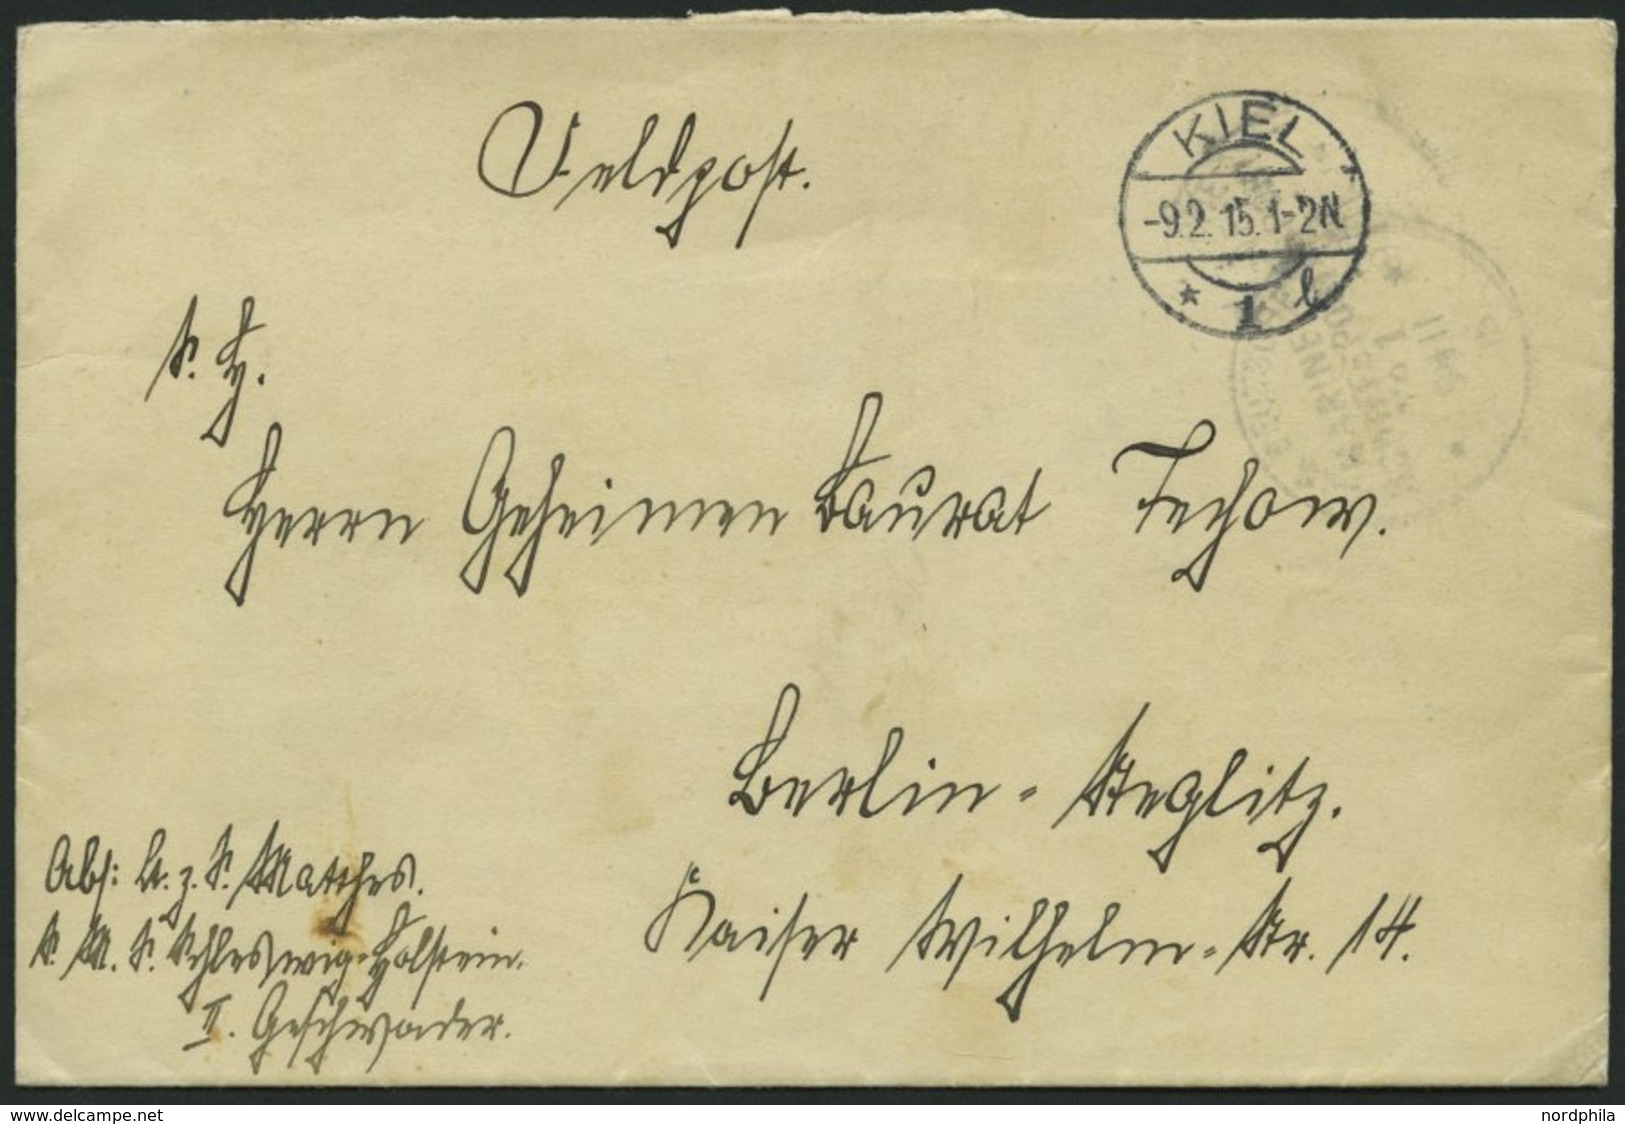 Feldpost.
KIEL
-9.2.15.1-2N
* 1 l
S. H.
Herrn Geheimen Baurat Techow.
Berlin-Steglitz.
Kaiser Wilhelm-Str. 14.
Abs: L. z. S. Matthes.
S. M. S. Schleswig-Holstein.
II. Geschwader.
www.delcampe.net
nordphila